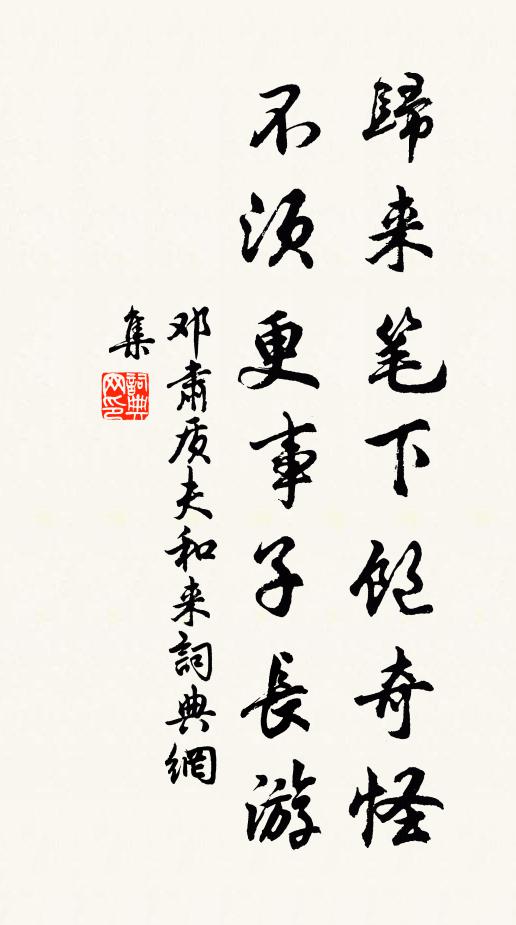 歸来笔下飽奇怪
不須更事子長游
邓肅质夫和来詞典網
集
詞典网印